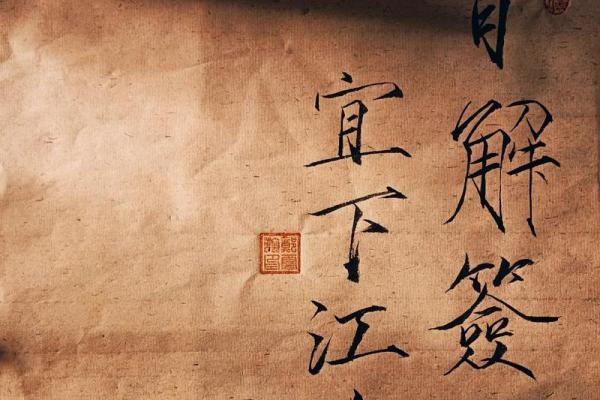 解簽
宜下江